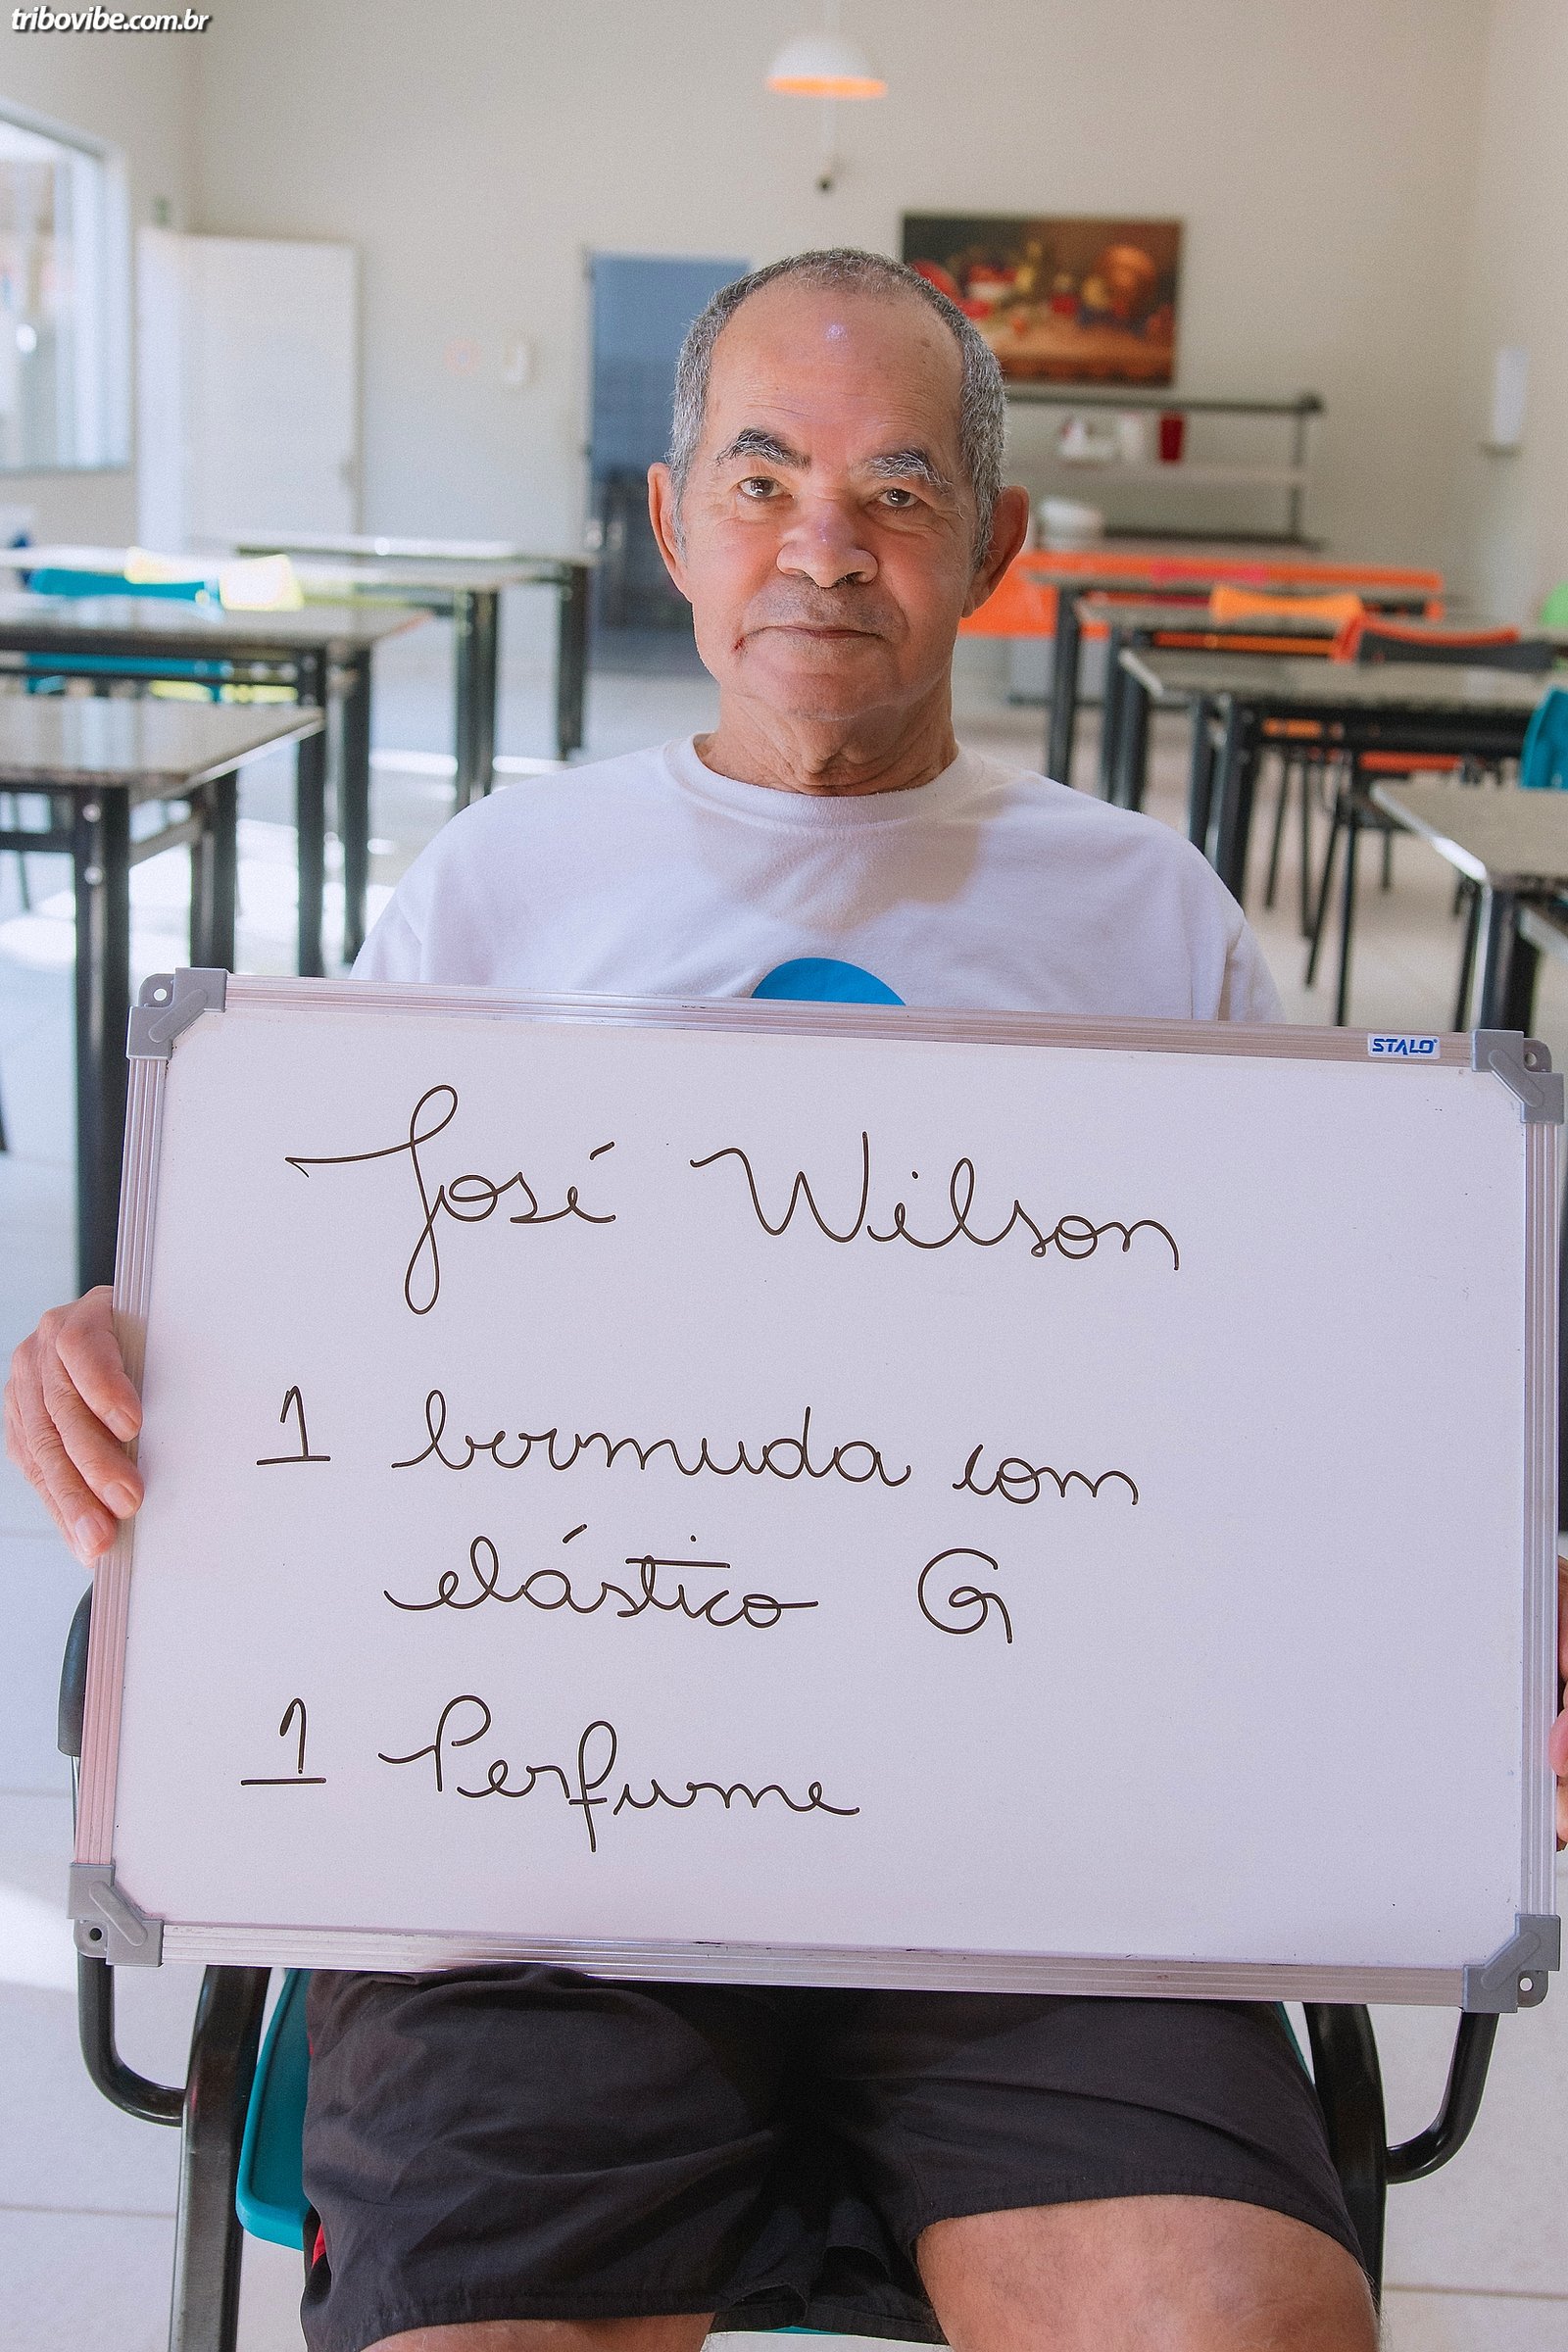 tribovibe.com.br
STALO
José Wilson
1 bermuda com
elástico G
1 Perfume